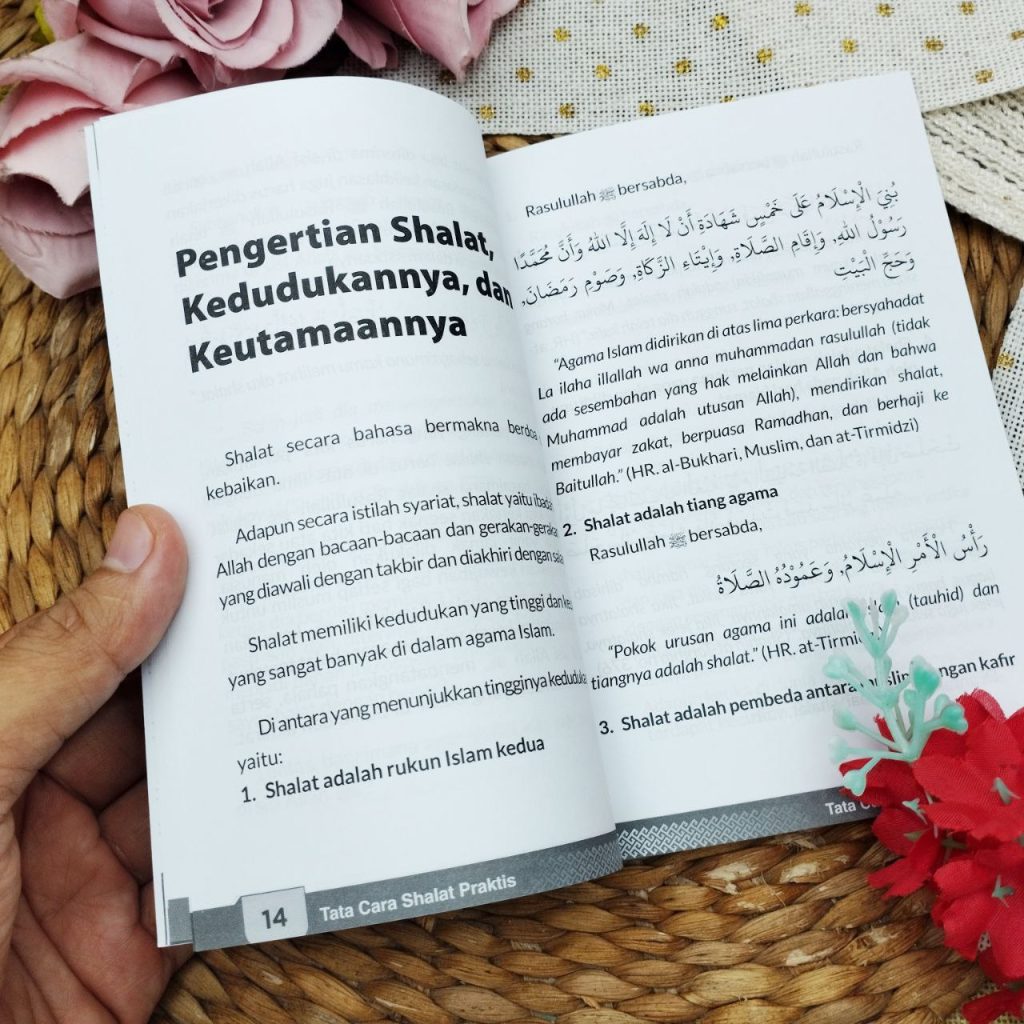 Pengertian Shalat,
Kedudukannya, dan
Keutamaannya
Shalat secara bahasa bermakna berdoa
kebaikan.
Adapun secara istilah syariat, shalat yaitu
Allah dengan bacaan-bacaan dan
yang diawali dengan takbir dan diakhiri dengan
Shalat memiliki kedudukan yang tinggi dan
yang sangat banyak di dalam agama Islam.
Di antara yang menunjukkan tingginya
yaitu:
1. Shalat adalah rukun Islam kedua
14 Tata Cara Shalat Praktis
Rasulullah ﷺ bersabda,
بُنِيَ الْإِسْلَامُ عَلَى خَمْسٍ شَهَادَةِ أَنْ لَا إِلَهَ إِلَّا اللهُ وَأَنَّ مُحَمَّدًا
رَسُوْلُ اللهِ, وَإِقَامِ الصَّلَاةِ, وَإِيْتَاءِ الزَّكَاةِ, وَصَوْمِ رَمَضَانَ,
وَحَجِّ الْبَيْتِ
“Agama Islam didirikan di atas lima perkara: bersyahadat
La ilaha illallah wa anna muhammadan rasulullah (tidak
ada sesembahan yang hak melainkan Allah dan bahwa
Muhammad adalah utusan Allah), mendirikan shalat,
membayar zakat, berpuasa Ramadhan, dan berhaji ke
Baitullah.” (HR. al-Bukhari, Muslim, dan at-Tirmidzi)
2. Shalat adalah tiang agama
Rasulullah ﷺ bersabda,
رَأْسُ الْأَمْرِ الْإِسْلَامُ, وَعَمُوْدُهُ الصَّلَاةُ
“Pokok urusan agama ini adalah (tauhid) dan
tiangnya adalah shalat.” (HR. at-Tirmidzi)
3. Shalat adalah pembeda antara muslim dengan kafir
Tata